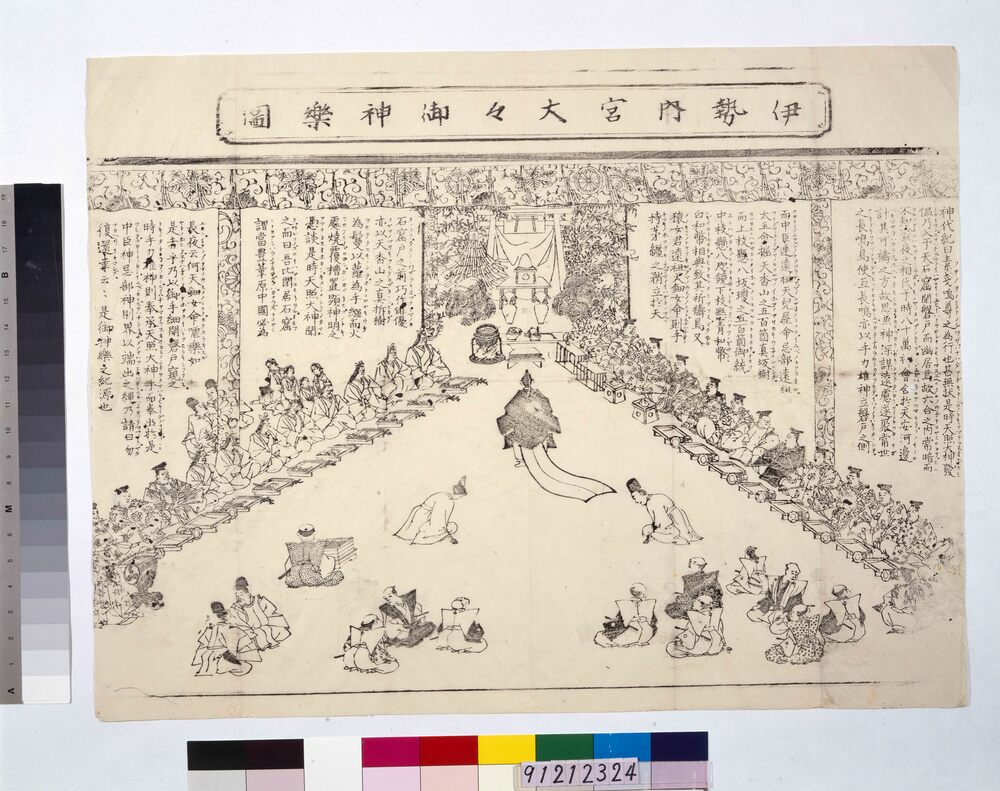 伊勢内宮大々御神樂圖
神代紀曰素戔嗚尊之為行也甚無状是時天照大神發
慍乃入于天石窟閉磐戸而幽居焉故六合之内常暗而
不知晝夜之相代于時八十萬神會合於天安河邊
計其可禱之方故思兼神深謀遠慮遂聚常世
之長鳴鳥使互長鳴亦以手力雄神立磐戸之側
而中臣連遠祖天兒屋命忌部遠祖
太玉命掘天香山之五百箇真坂樹
而上枝懸八坂瓊之五百箇御統
中枝懸八咫鏡下枝懸青和幣
白和幣相與致其祈禱焉又
猿女君遠祖天鈿女命則手
持茅纏之矟立於天
石窟戸之前巧作俳優
亦以天香山之真坂樹
為鬘以蘿為手繦而火
處燒覆槽置顕神明之
憑談是時天照大神聞
之而曰吾比閉居石窟
謂當豊葦原中國必為
長夜云何天鈿女命㖸樂如
是者乎乃以御手細開磐戸窺之
時手力雄神則奉承天照大神手而奉出於是
中臣神忌部神則界以端出之縄乃請曰勿
復還幸云々是御神樂之紀源也
91212324